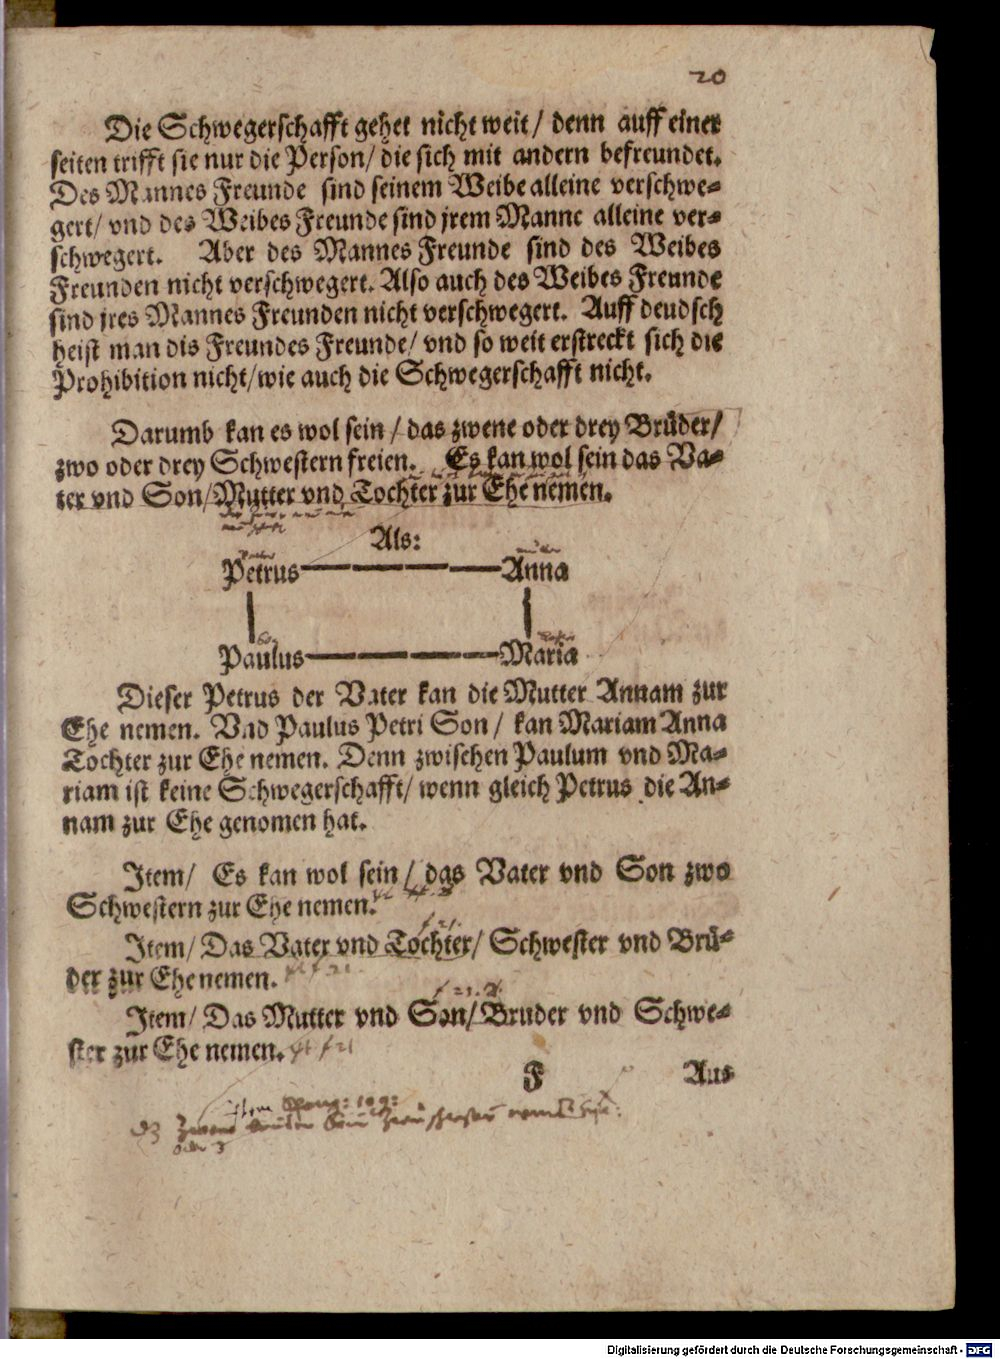 20
Die Schwegerschafft gehet nicht weit/ denn auff einer
seiten trifft sie nur die Person/ die sich mit andern befreundet.
Des Mannes Freunde sind seinem Weibe alleine verschwe⸗
gert/ vnd des Weibes Freunde sind jrem Manne alleine ver⸗
schwegert. Aber des Mannes Freunde sind des Weibes
Freunden nicht verschwegert. Also auch des Weibes Freunde
sind jres Mannes Freunden nicht verschwegert. Auff deudsch
heist man dis Freundes Freunde/ vnd so weit erstreckt sich die
Prohibition nicht/ wie auch die Schwegerschafft nicht.
Darumb kan es wol sein/ das zwene oder drey Brüder/
zwo oder drey Schwestern freien. Es kan wol sein das Va⸗
ter vnd Son/ Mutter vnd Tochter zur Ehe nemen.
Als:
Petrus Anna
Paulus Maria
Dieser Petrus der Vater kan die Mutter Annam zur
Ehe nemen. Vnd Paulus Petri Son/ kan Mariam Anna
Tochter zur Ehe nemen. Denn zwischen Paulum vnd Ma⸗
riam ist keine Schwegerschafft/ wenn gleich Petrus die An⸗
nam zur Ehe genomen hat.
Item/ Es kan wol sein/ das Vater vnd Son zwo
Schwestern zur Ehe nemen.
Item/ Das Vater vnd Tochter/ Schwester vnd Brü⸗
der zur Ehe nemen.
Item/ Das Mutter vnd Son/ Bruder vnd Schwe⸗
ster zur Ehe nemen.
F Aus
Digitalisierung gefördert durch die Deutsche Forschungsgemeinschaft - DFG